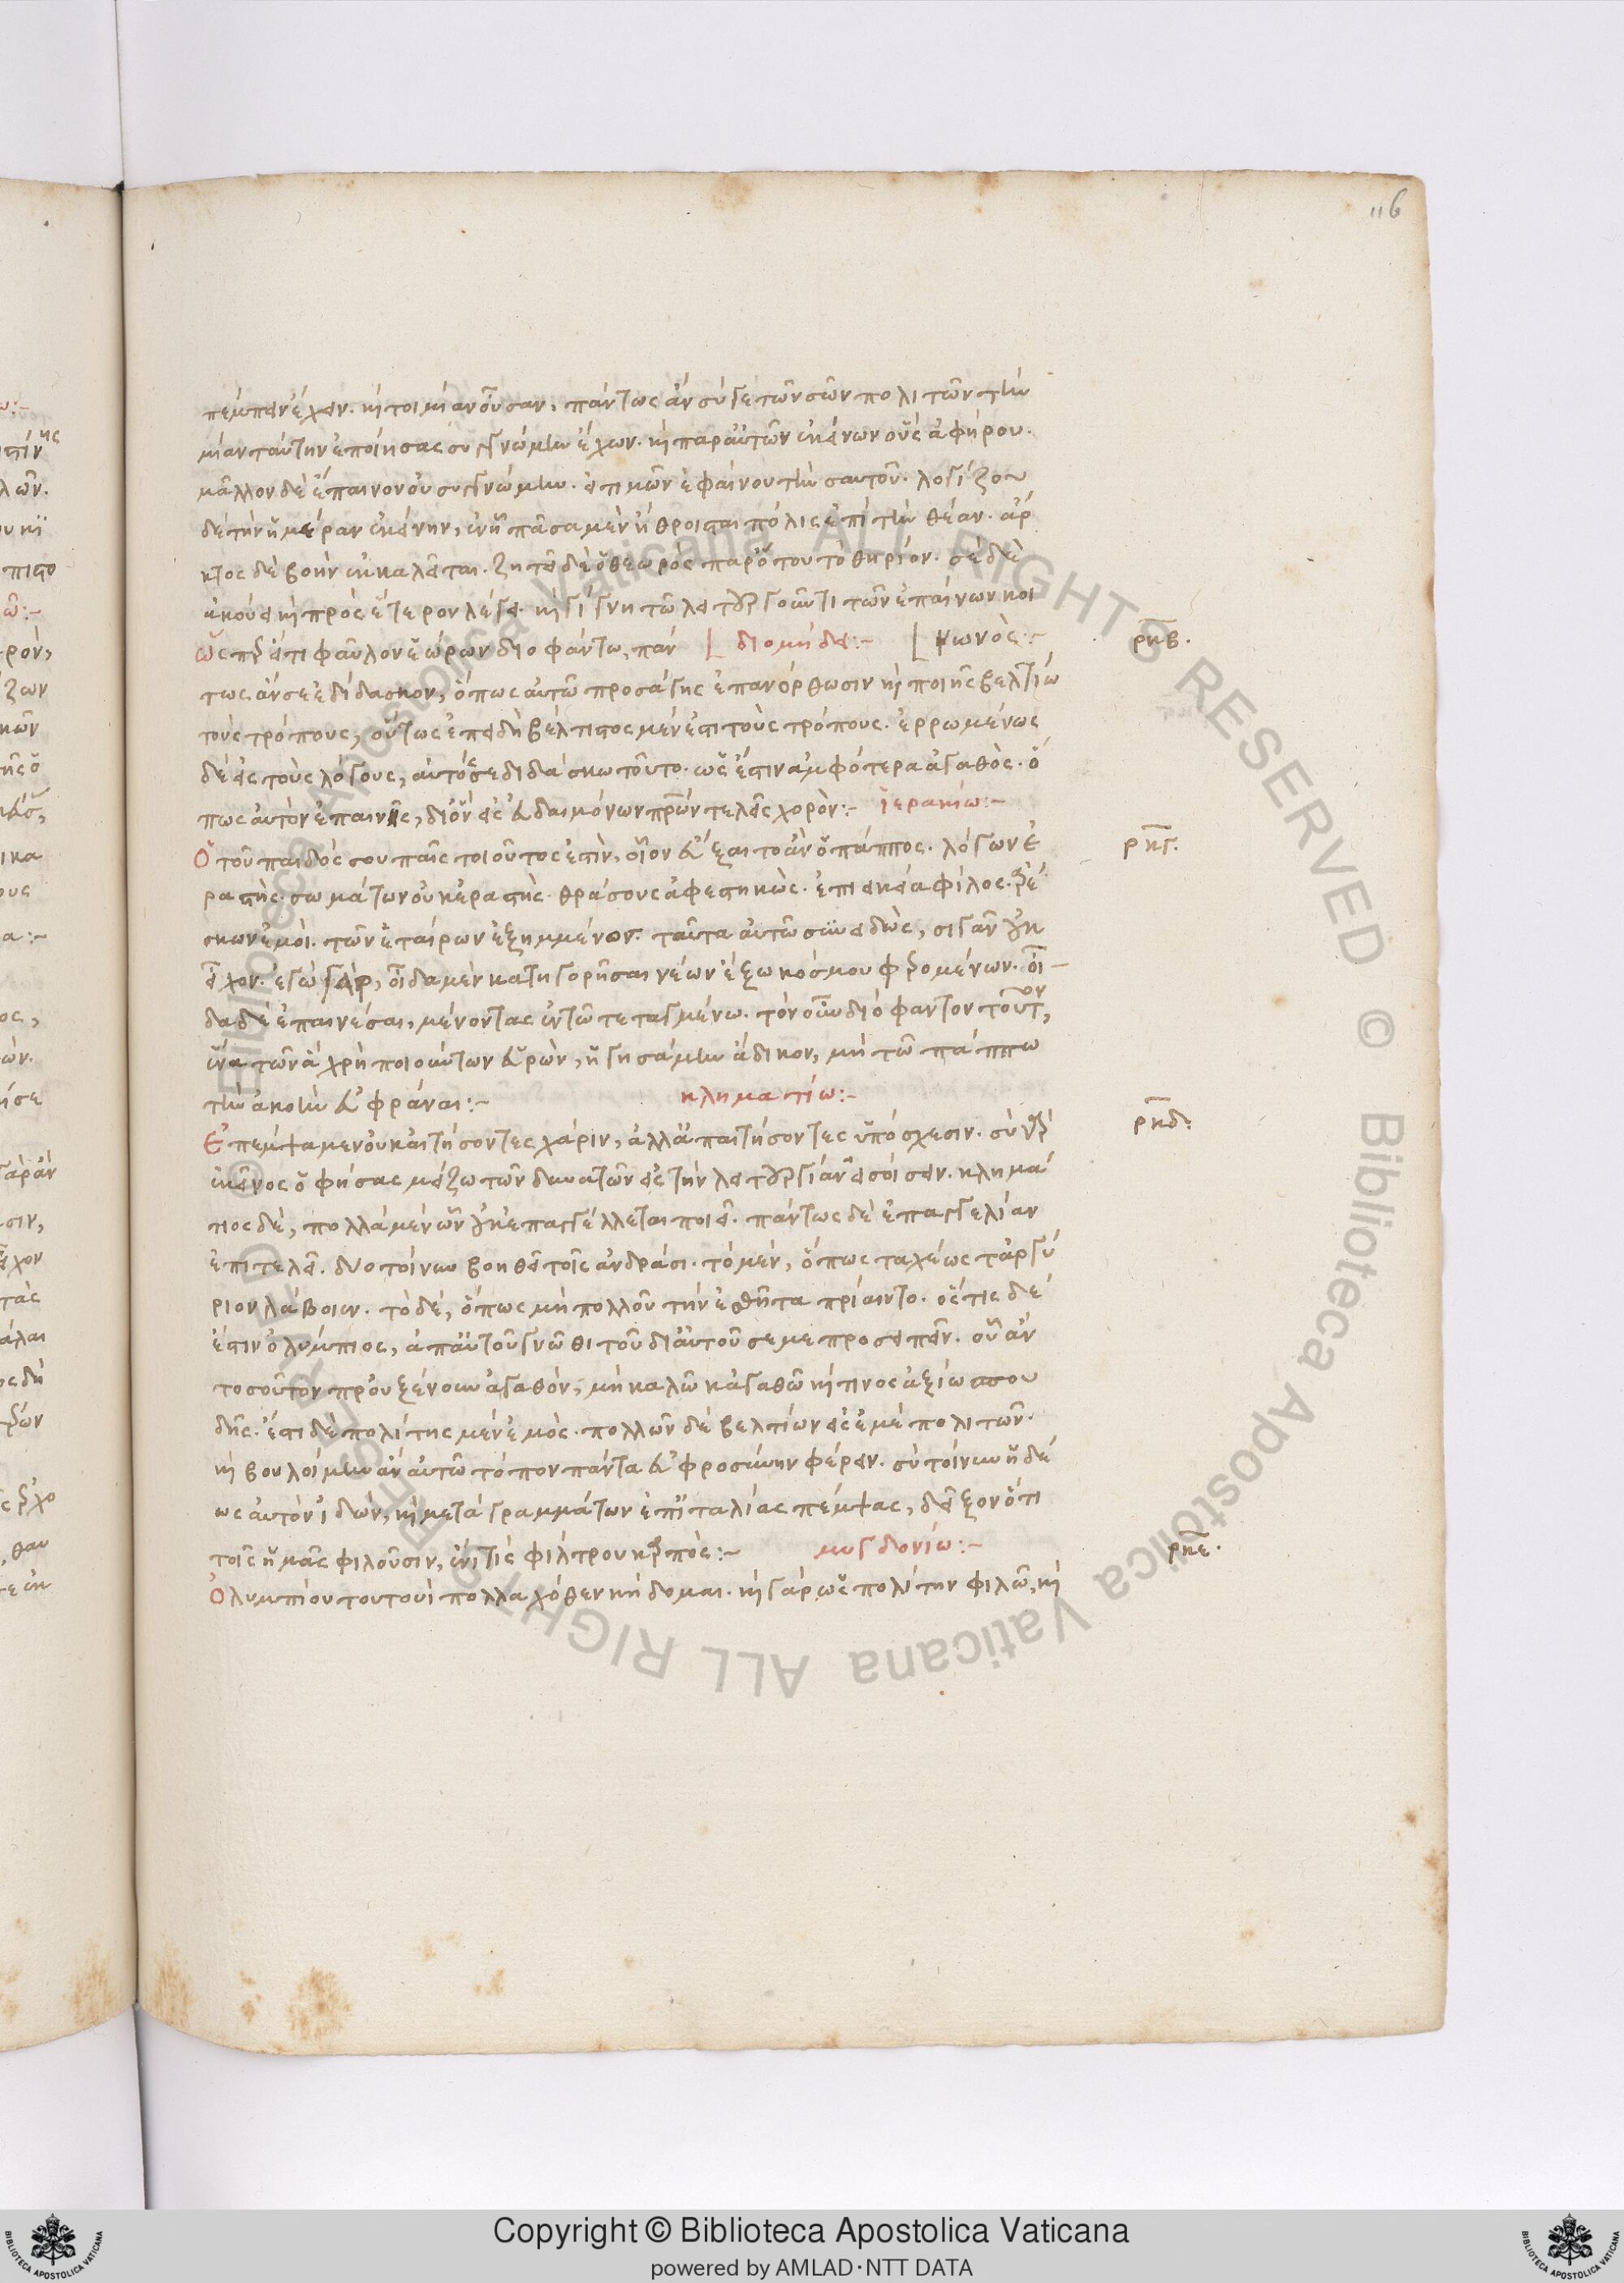 116
πέμπειν ἔχειν. καὶ τοι μίαν οὖσαν, πάντως ἂν σύ γε τῶν σῶν πολιτῶν τὴν
μίαν ταύτην ἐποίησας συγγνώμην ἔχων. καὶ παρ αὐτῶν ἐκείνων οὓς ἀφῄρου.
μᾶλλον δὲ ἔπαινον οὐ συγγνώμην. εἰ τιμῶν ἐφαίνου τὴν σαυτοῦ. λογίζου
δὲ τὴν ἡμέραν ἐκείνην, ἐν ᾗ πᾶσα μὲν ἤθροισται πόλις ἐπὶ τὴν θέαν. ἄρ
κτος δὲ βοὴν ἐκκαλεῖται. ζητεῖ δὲ ὁ θεωρὸς παρ ὅτου τὸ θηρίον. σὲ δὲ
ἀκούει καὶ πρὸς ἕτερον λέγει. καὶ γίγνῃ τῷ λειτουργοῦντι τῶν ἐπαίνων κοι
ὥσπερ εἴ τι φαῦλον ἑώρων διοφάντω, πάν [ διομήδει:- [ νωνός:-
ρκβ.
τως ἄν σε ἐδίδασκον, ὅπως αὐτῷ προσάγῃς ἐπανόρθωσιν καὶ ποιῇς βελτίω
τοὺς τρόπους, οὕτως ἐπειδὴ βέλτιστος μέν ἐστι τοὺς τρόπους. ἐρρωμένως
δὲ εἰς τοὺς λόγους, αὐτό σε διδάσκω τοῦτο. ὡς ἔστιν ἀμφότερα ἀγαθός. ὅ
πως αὐτὸν ἐπαινῇς, δι ὃν εἰς εὐδαιμόνων πατέρων τελεῖς χορόν:- ἱερακίω:-
Ὁ τοῦ παιδός σου παῖς τοιοῦτος ἐστὶν, οἷον εὔξαιτο ἂν ὁ πάππος. λόγων ἐ
ρκγ.
ραστής. σωμάτων οὐκ ἐραστής. θράσους ἀφεστηκώς. ἐπιεικείᾳ φίλος. ἀρέ
σκων ἐμοί. τῶν ἑταίρων ἐξημμένος. ταῦτα αὐτῷ συνειδώς, σιγᾶν οὐκ
εἶχον. ἐγὼ γὰρ, οἶδα μὲν κατηγορῆσαι νέων ἔξω κόσμου φερομένων. οἶ
δα δὲ ἐπαινέσαι, μένοντας ἐν τῷ τεταγμένω. τὸν οὖν διόφαντον τοῦτον,
ἕνα τῶν ἃ χρὴ ποιούντων εὑρὼν, ἡγησάμην ἄδικον, μὴ τῷ πάππω
τὴν ἀκοὴν εὐφρᾶναι:- κληματίω:-
ρκδ.
Ἐπέμψαμεν οὐκ αἰτήσοντες χάριν, ἀλλ ἀπαιτήσοντες ὑπόσχεσιν. σὺ γὰρ
ἐκεῖνος ὁ φήσας μείζω τῶν δυνατῶν εἰς τὴν λειτουργίαν εἰσοίσειν. κλημά
τιος δὲ, πολλὰ μὲν ὧν οὐκ ἐπαγγέλλεται ποιεῖ. πάντως δὲ ἐπαγγελίαν
ἐπιτελεῖ. δυο τοίνυν βοηθεῖ τοῖς ἀνδράσι. τὸ μὲν, ὅπως ταχέως τἀργύ
ριον λάβοιεν. τὸ δὲ, ὅπως μὴ πολλοῦ τὴν ἐσθῆτα πρίαιντο. ὅς τις δέ
ἐστιν ὀλύμπιος, ἀπ αὐτοῦ γνῶθι τοῦ δι αὐτοῦ σέ με προσειπεῖν. οὐ ἂν
τοσοῦτον προὐξένουν ἀγαθόν, μὴ καλῷ κἀγαθῷ καὶ τινος ἀξίω σπου
δῆς. ἔστι δὲ πολίτης μὲν ἐμός. πολλῶν δὲ βελτίων εἰς ἐμὲ πολιτῶν.
καὶ βουλοίμην ἂν αὐτῷ τόπον πάντα εὐφροσύνην φέρειν. σὺ τοίνυν ἡδέ
ως αὐτὸν ἰδών, καὶ μετὰ γραμμάτων ἐπ ἰταλίας πέμψας, δεῖξον ὅτι
τοῖς ἡμᾶς φιλοῦσιν, ἔνι τις φίλτρου καρπός:- μυγδονίω:-
ρκε.
Ὀλυμπίου τουτουὶ πολλαχόθεν κήδομαι. καὶ γὰρ ὡς πολίτην φιλῶ, καὶ
Copyright © Biblioteca Apostolica Vaticana
powered by AMLAD·NTT DATA